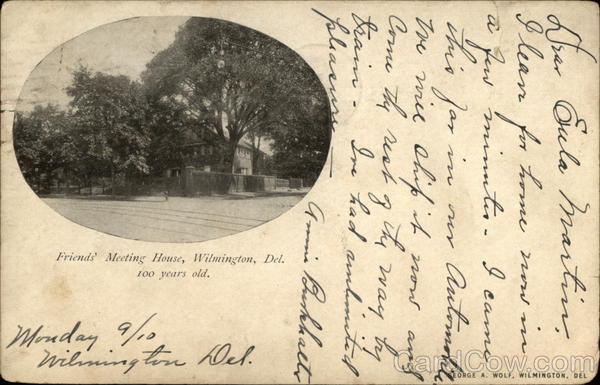 Friends' Meeting House, Wilmington, Del.
100 years old.
Monday 9/10
Wilmington Del.
Dear Eula Martin,
I leave for home now in
a few minutes - I came
this far in our Automobile
We will ship it now and
Come the rest of the way by
train - I've had unlimited
pleasure -
Annie Burkhalter
GEORGE A. WOLF, WILMINGTON, DEL
CardCow.com